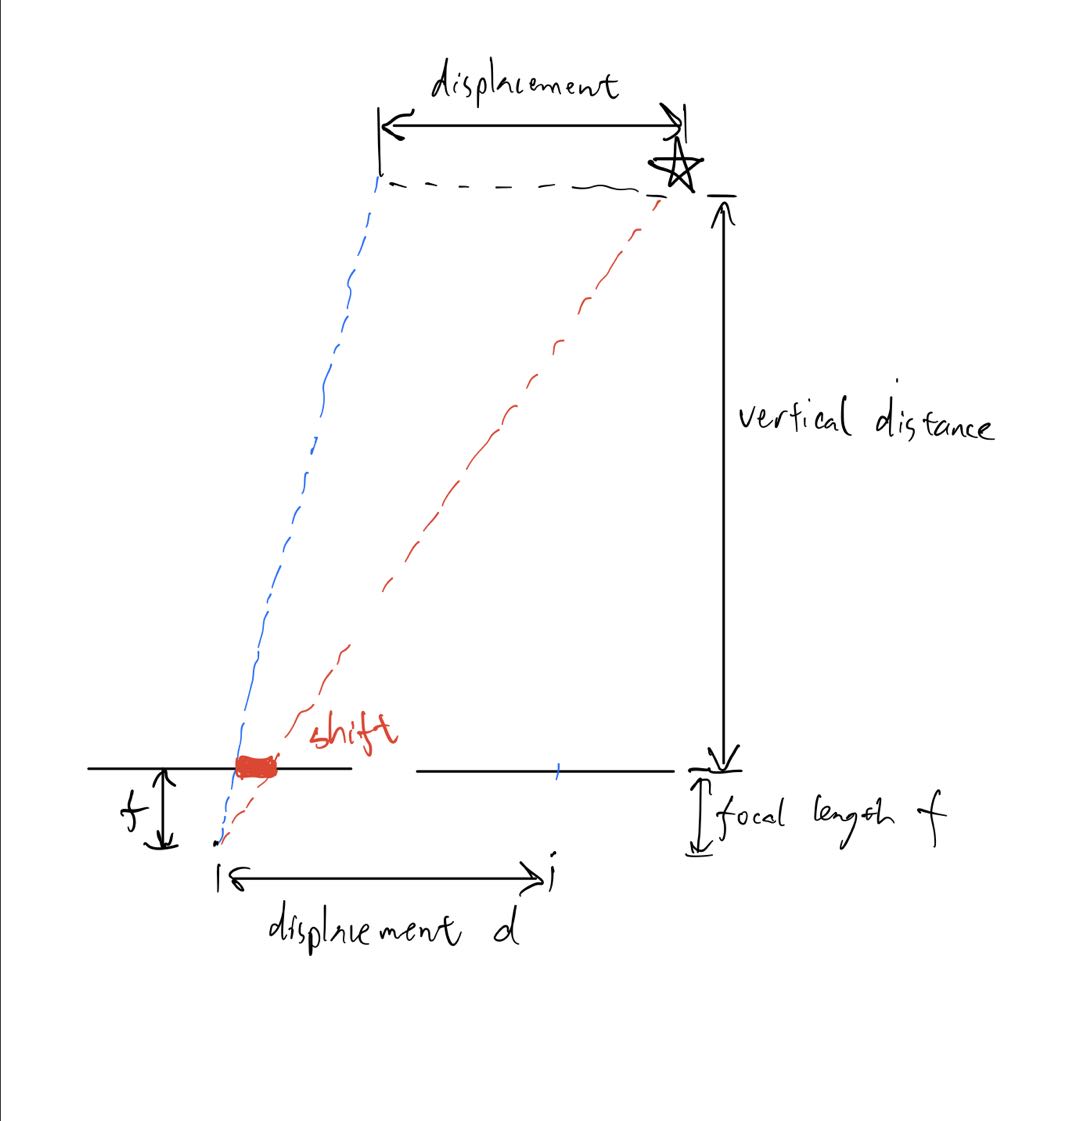 displacement
vertical distance
shift
f
focal length f
displacement d